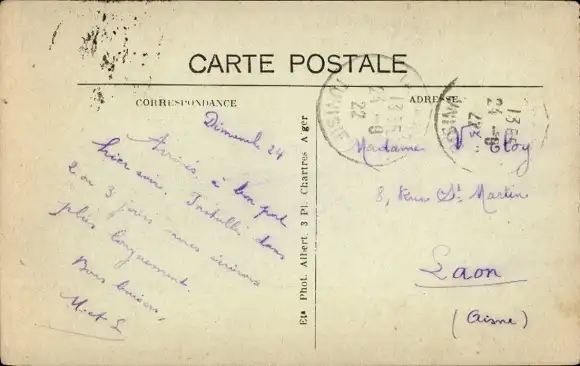 CARTE POSTALE
CORRESPONDANCE
ADRESSE
Dimanche 24
Arrivés à bon port
hier soir. Installés dans
2 ou 3 jours nous écrirons
plus longuement.
Bons baisers,
M. et L
Eta Phot. Albert, 3 Pl. Chartres Alger
TUNISIE
13 55
24 -9
22
TUNISIE
13 55
24 -9
22
Madame Vve
8, Rue St Martin
Laon
(Aisne)